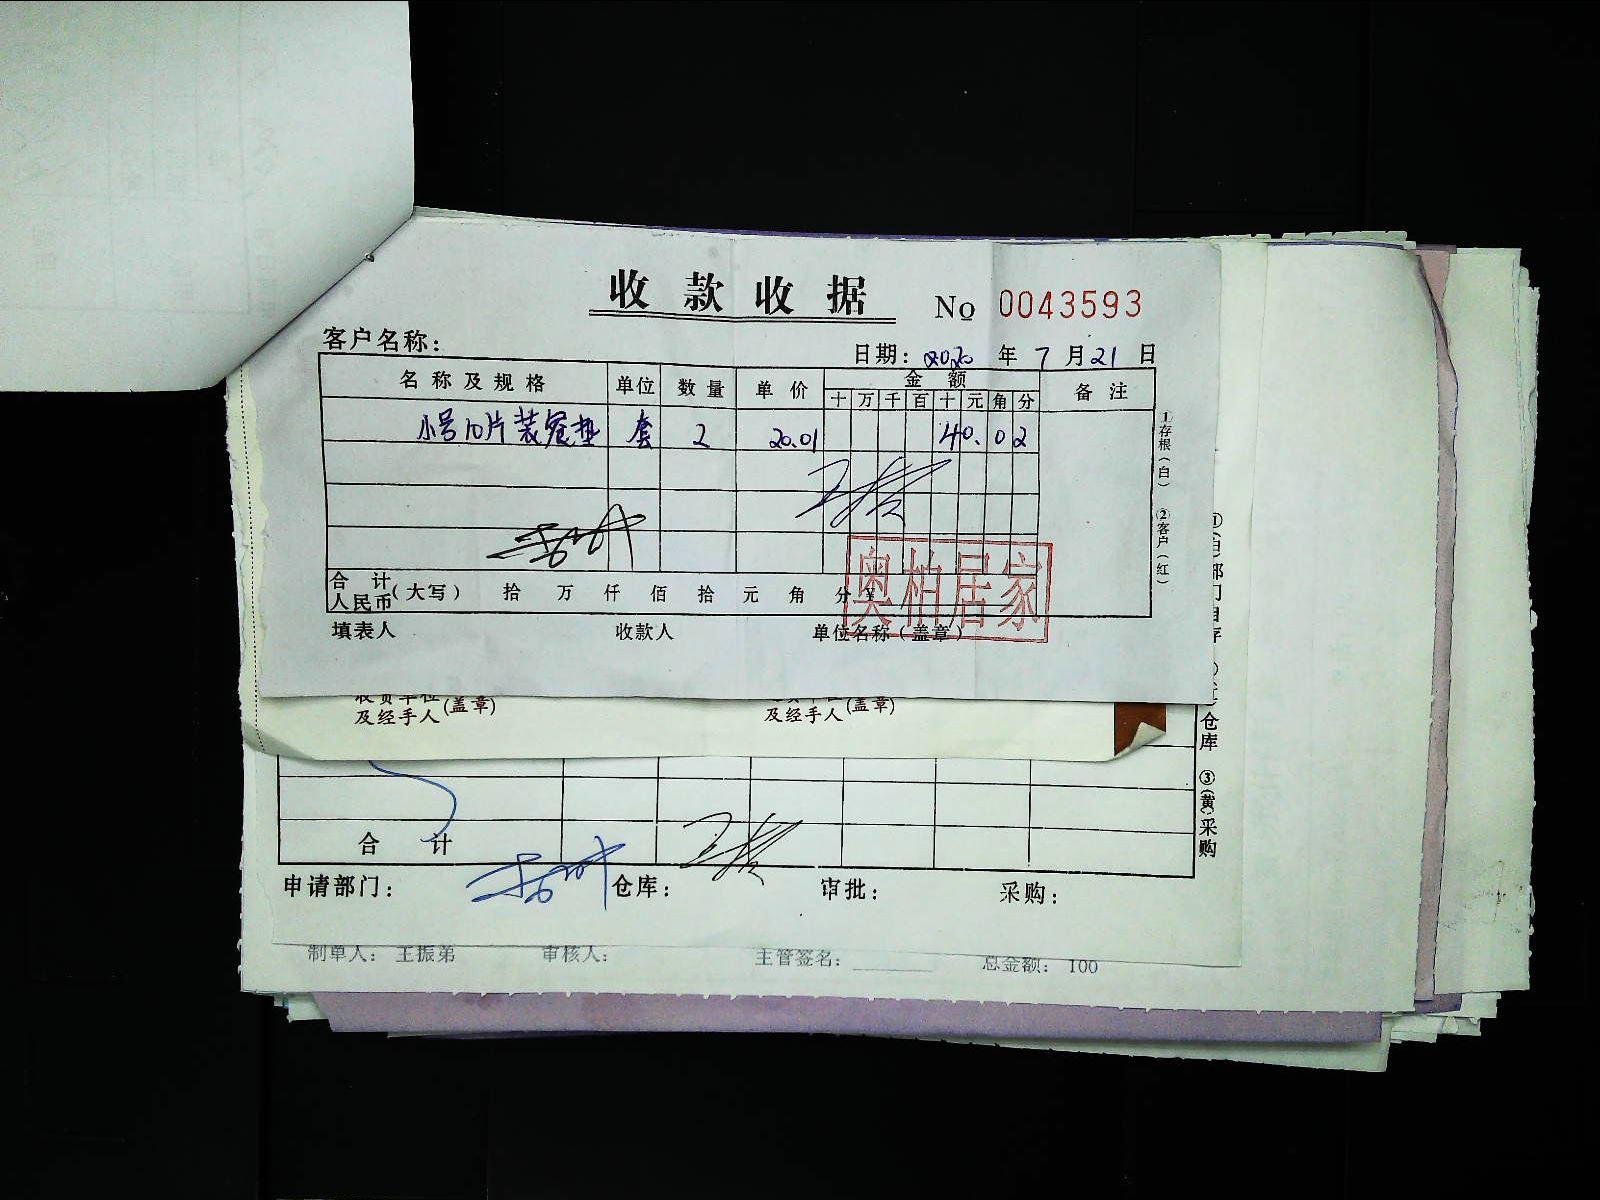 收款收据 No 0043593
客户名称： 日期：2020 年 7 月 21 日
名称及规格 单位 数量 单价 金额 备注
十 万 千 百 十 元 角 分
小号10片装 套 2 20.01 40.02
合计人民币（大写） 拾 万 仟 佰 拾 元 角 分 ¥
奥柏居家
填表人 收款人 单位名称（盖章）
①存根（白） ②客户（红）
收费单位及经手人（盖章） 及经手人（盖章）
仓库 ③(黄)采购
合计
申请部门： 仓库： 审批： 采购：
制单人： 王振弟 审核人： 主管签名： 总金额： 100